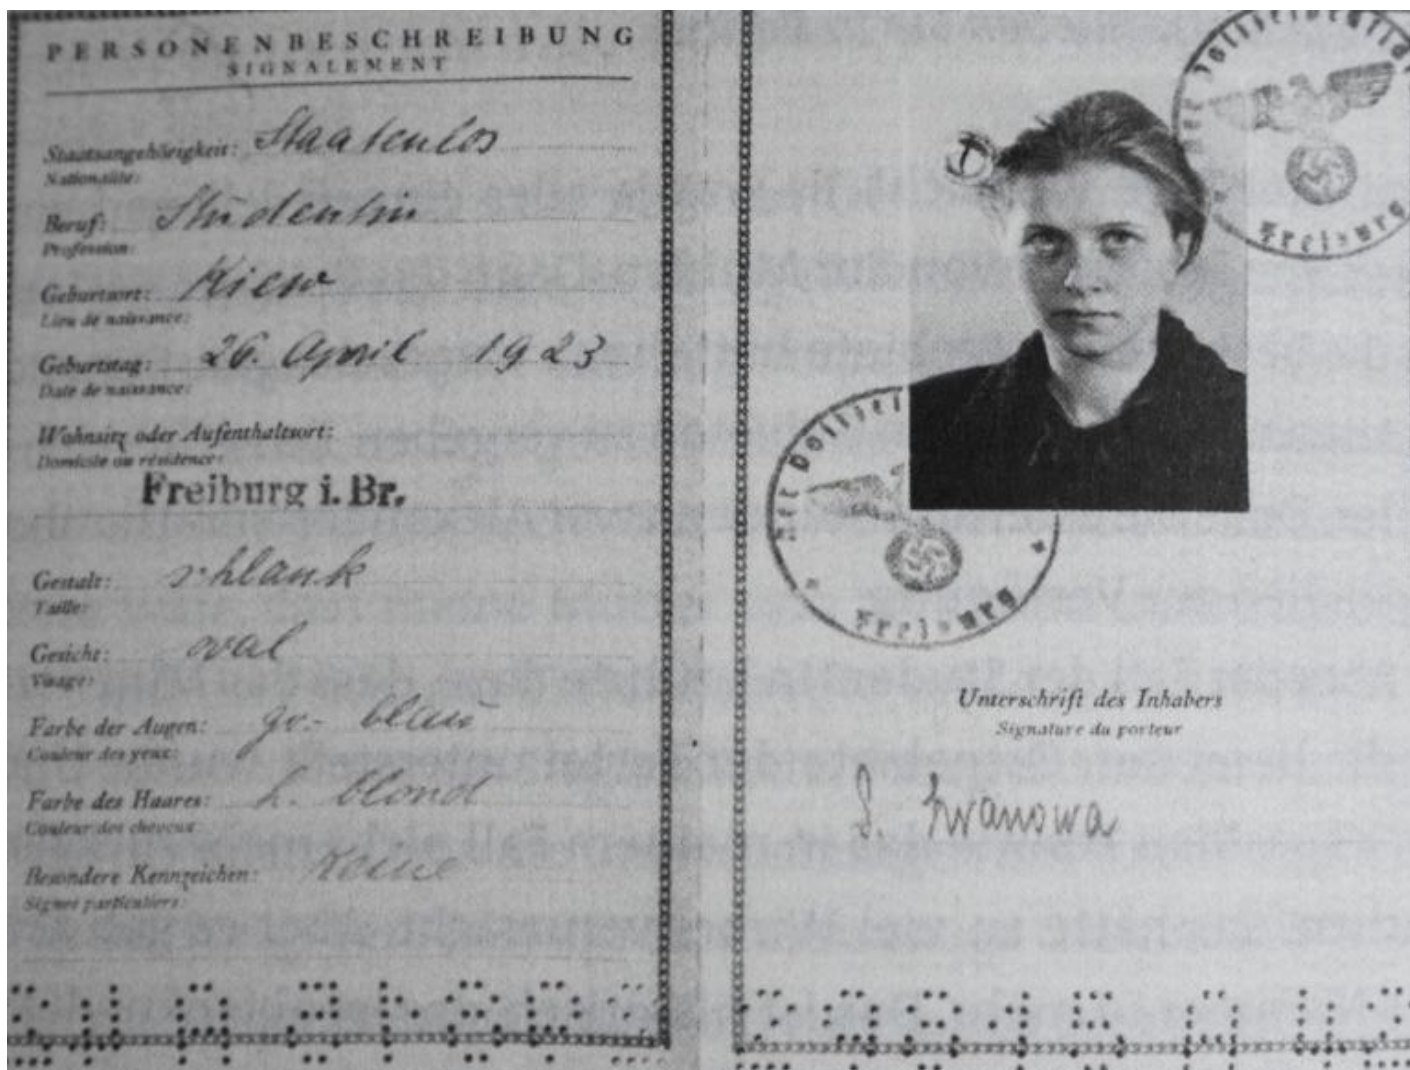 PERSONENBESCHREIBUNG
SIGNALEMENT
Staatsangehörigkeit: Staatenlos
Nationalité:
Beruf: Studentin
Profession:
Geburtsort: Kiew
Lieu de naissance:
Geburtstag: 26. April 1923
Date de naissance:
Wohnsitz oder Aufenthaltsort:
Domicile ou résidence:
Freiburg i. Br.
Gestalt: schlank
Taille:
Gesicht: oval
Visage:
Farbe der Augen: gr.- blau
Couleur des yeux:
Farbe des Haares: h. blond
Couleur des cheveux:
Besondere Kennzeichen: Keine
Signes particuliers:
Freiburg
Freiburg
Unterschrift des Inhabers
Signature du porteur
S. Iwanowa